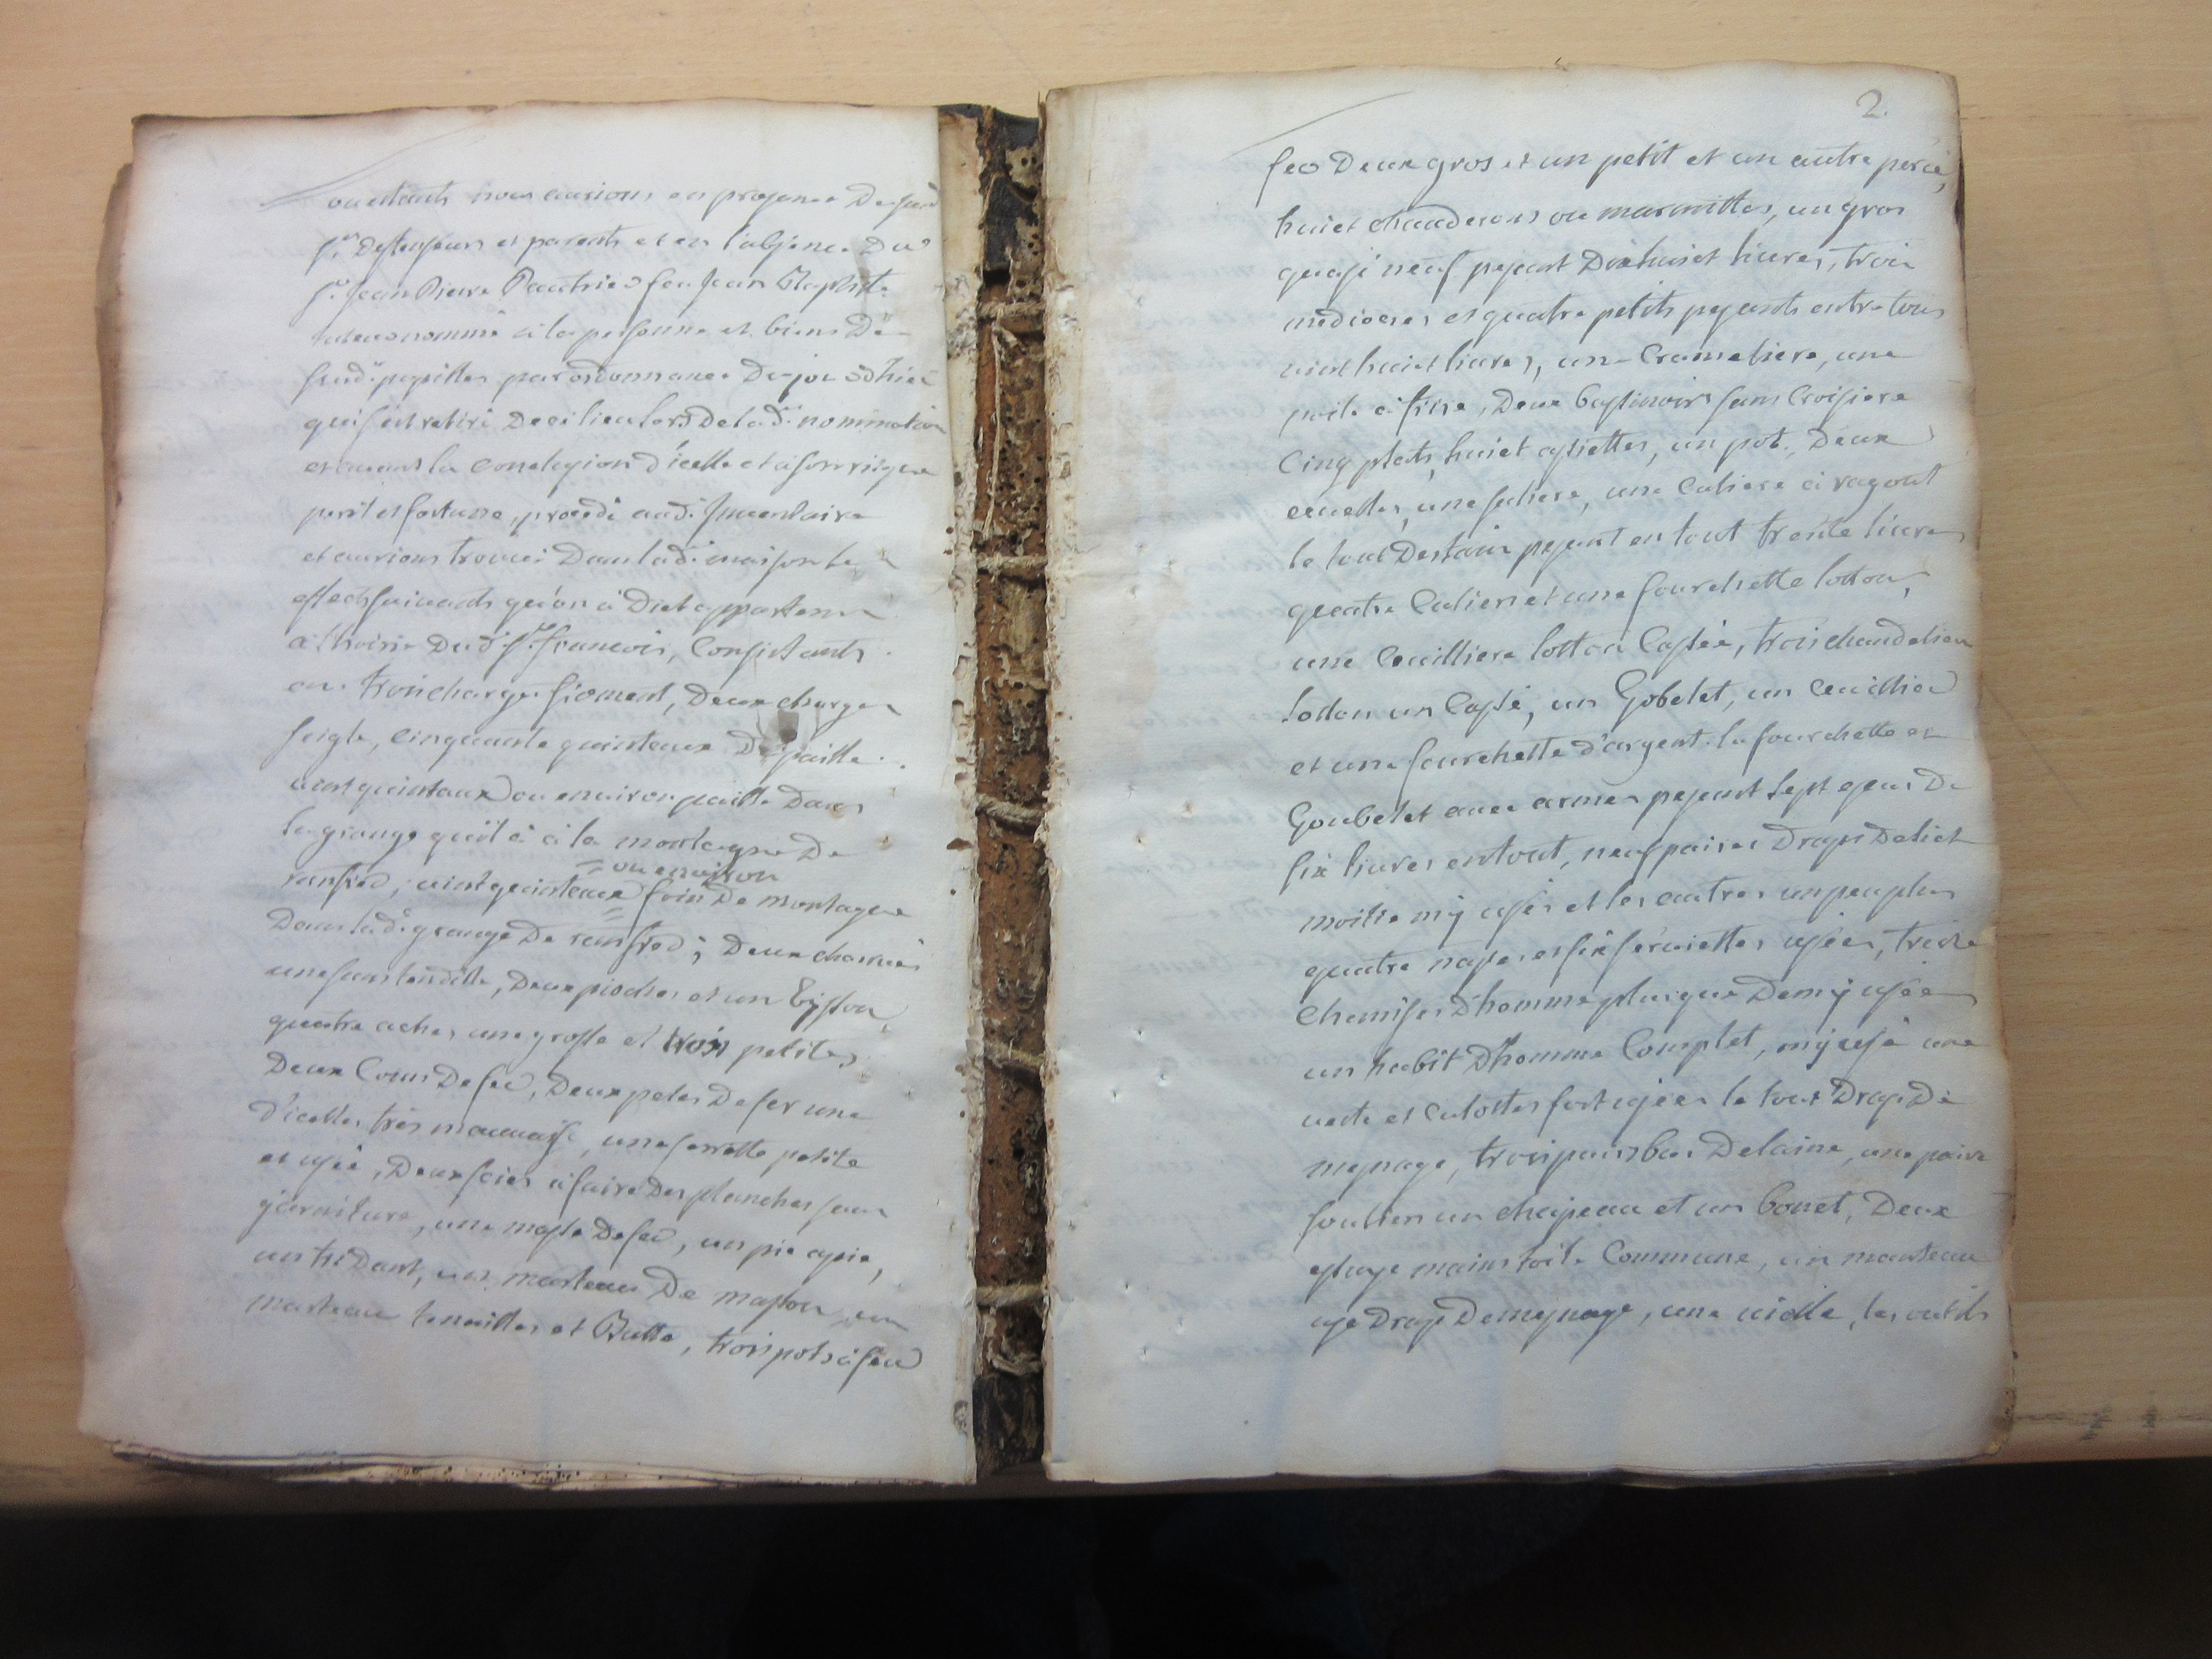 ou étants nous aurions en presence desusd
s.rs deffenseurs et parents et en l'absence du
s.r Jean Pierre feu Jean Baptiste
nommé à la personne et biens de
susd. pupilles par ordonnance de jour d'hier
qui s'est retiré de ci lieu lors de lad. nomination
et avant la conclusion d'icelle et à son risque
peril et fortune, procedé aud. Inventaire
et aurions trouvé dans lad. maison le
effects suivants qu'on à dict appartenir
à l'hoirie dud. s.r francois, Consistants
en trois charges froment, deux charges
seigle, cinquante quinteaux de paille
vint quintaux ou environ paille dans
la grange qu'il à à la montagne de
= ou environ
, vint quinteaux = foin de montagne
dans lad. grange de ; deux charrues
une sans tendille, deux pioches et un
quatre aches une grosse et trois petites,
deux Coins de fer, deux peles de fer une
d'icelles très mauvaise, une serrette petite
et usée, deux scies à faire des planches sans
garniture, une masse de fer, un pic apié,
un tridant, un marteau de masson, un
marteau tenailles et Butte, trois pots à feu
2.
fer deux gros et un petit et un autre percé,
huict chauderons ou marmittes, un gros
quasi neuf pesant dixhuict livres, trois
mediocres et quatre petits pesants entre tous
vint huict livres, une Cramaliere, une
poile à frire, deux bassinoirs sans Croisiere
Cinq plats, huict assiettes, un pot, deux
ecuelles, une saliere, une Culiere à ragout
le tout destain pesant en tout trente livres
quatre Culiers et une fourchette lotton,
une Ceuilliere lotton Cassée, trois chandeliers
lotton un Cassé, un Gobelet, un Ceuillier
et une fourchette d'argent. la fourchette et
Goubelet avec armes pesant sept ecus de
six livres en tout, neuf paires draps de lict
moitié mÿ usés et les autres un peu plus
quatre napes et six serviettes usées, treize
Chemises d'homme plus que demÿ usées
un habit d'homme Complet, mÿ usé une
veste et culottes fort usées le tout drap de
mesnage, trois pairs bas de laine, une paire
souliers un chapeau et un bonet, deux
essuye mains toile Commune, un manteau
usé drap de mesnage, une vielle, les outils